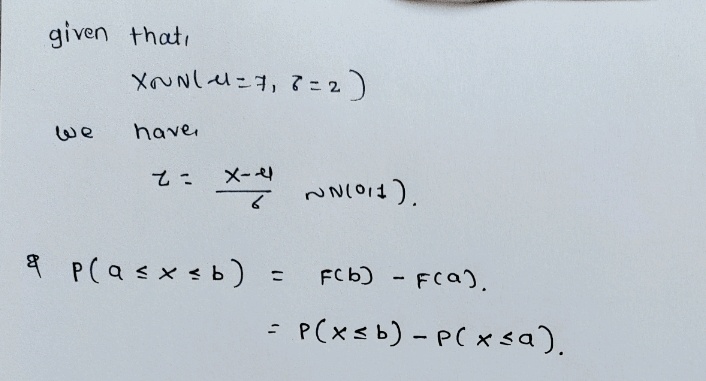 given that,
X~N(μ=7, σ=2)
we have,
Z = X-μ/σ ~N(0,1).
& P(a ≤ x ≤ b) = F(b) - F(a).
= P(x≤b) - P(x≤a).